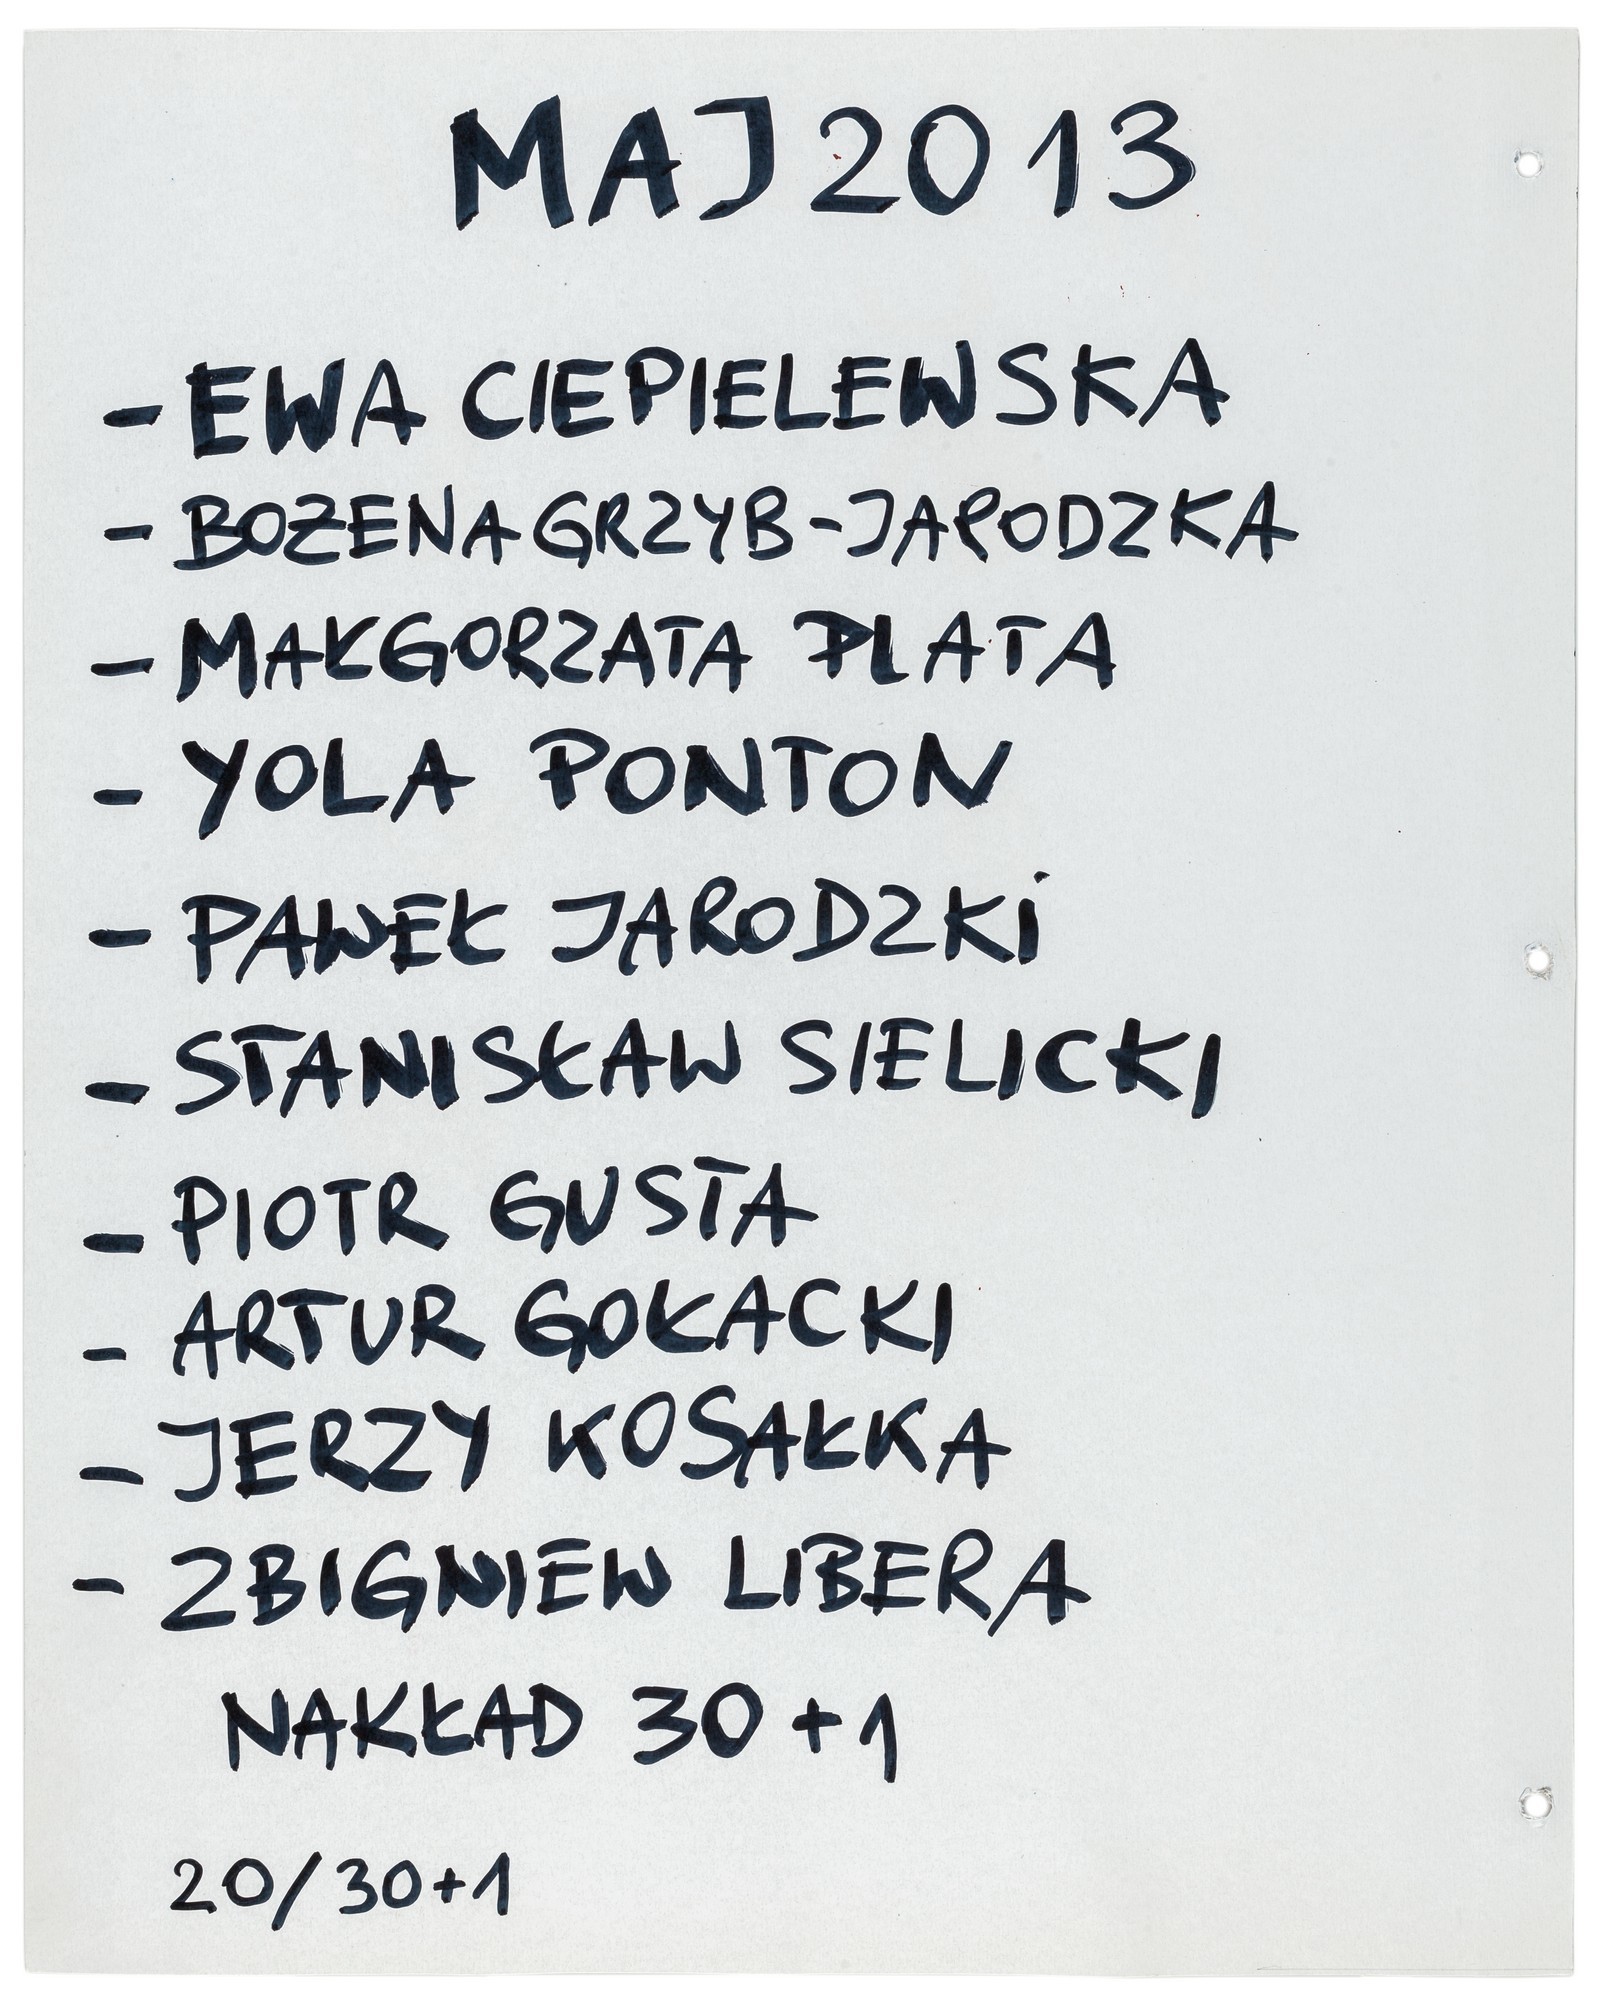 MAJ 2013
- EWA CIEPIELEWSKA
- BOŻENA GRZYB-JARODZKA
- MAŁGORZATA PLATA
- YOLA PONTON
- PAWEŁ JARODZKi
- STANISŁAW SIELICKI
- PIOTR GUSTA
- ARTUR GOŁACKI
- JERZY KOSAŁKA
- ZBIGNIEW LIBERA
NAKŁAD 30+1
20/30+1